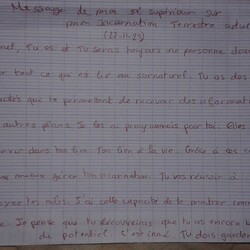 Message de mon soi supérieur sur
mon Incarnation Terrestre actuel
(22-11-23)
Tu es et Tu seras toujours une personne dou
tout ce qui est lié au surnaturel. Tu as des
qui te permettent de recevoir des informat
autres plans. Je les ai programmés pour toi. Elles
dans ton lien à la vie. Grâce à ces
mieux gérer ton incarnation. Tu vas réussir à
les mots. J'ai cette capacité de te montrer comm
Je pense que tu découvriras que tu as encore
du potentiel. C'est inné. Tu dois garder